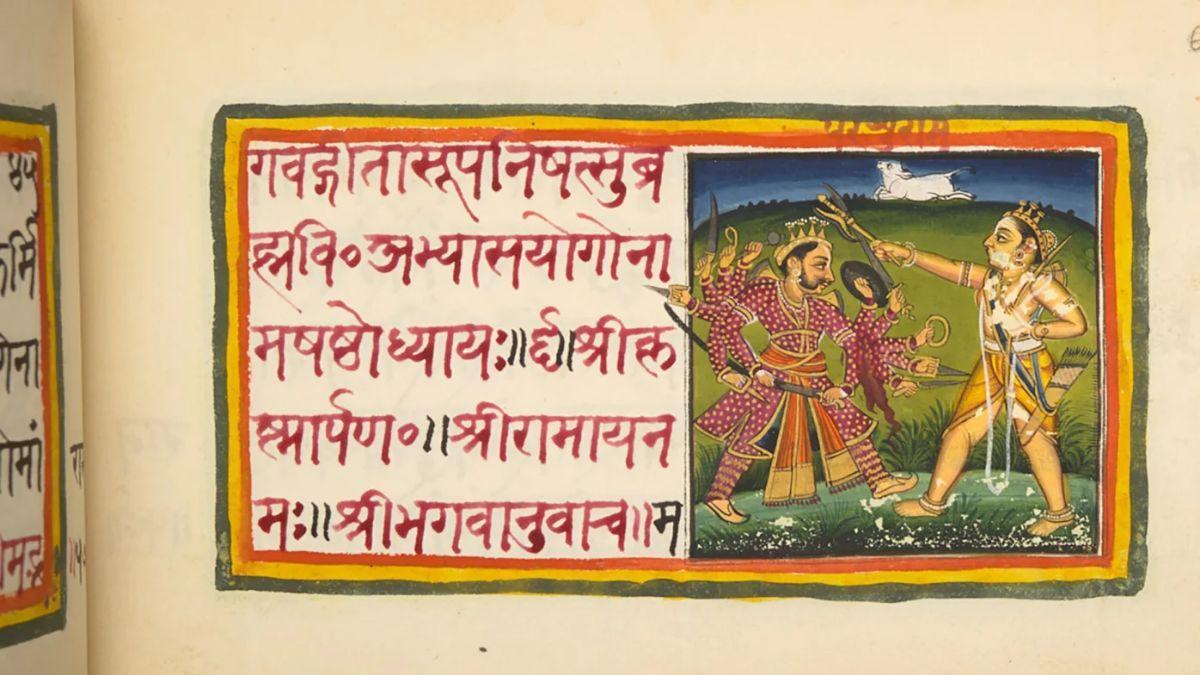 परशुराम
गवद्गीतासूपनिषत्सुब्र
ह्मवि॰अभ्यासयोगोना
मषष्ठोध्यायः॥६॥श्रीकृ
ष्णार्पण॰॥श्रीरामायन
मः॥श्रीभगवानुवाच॥म